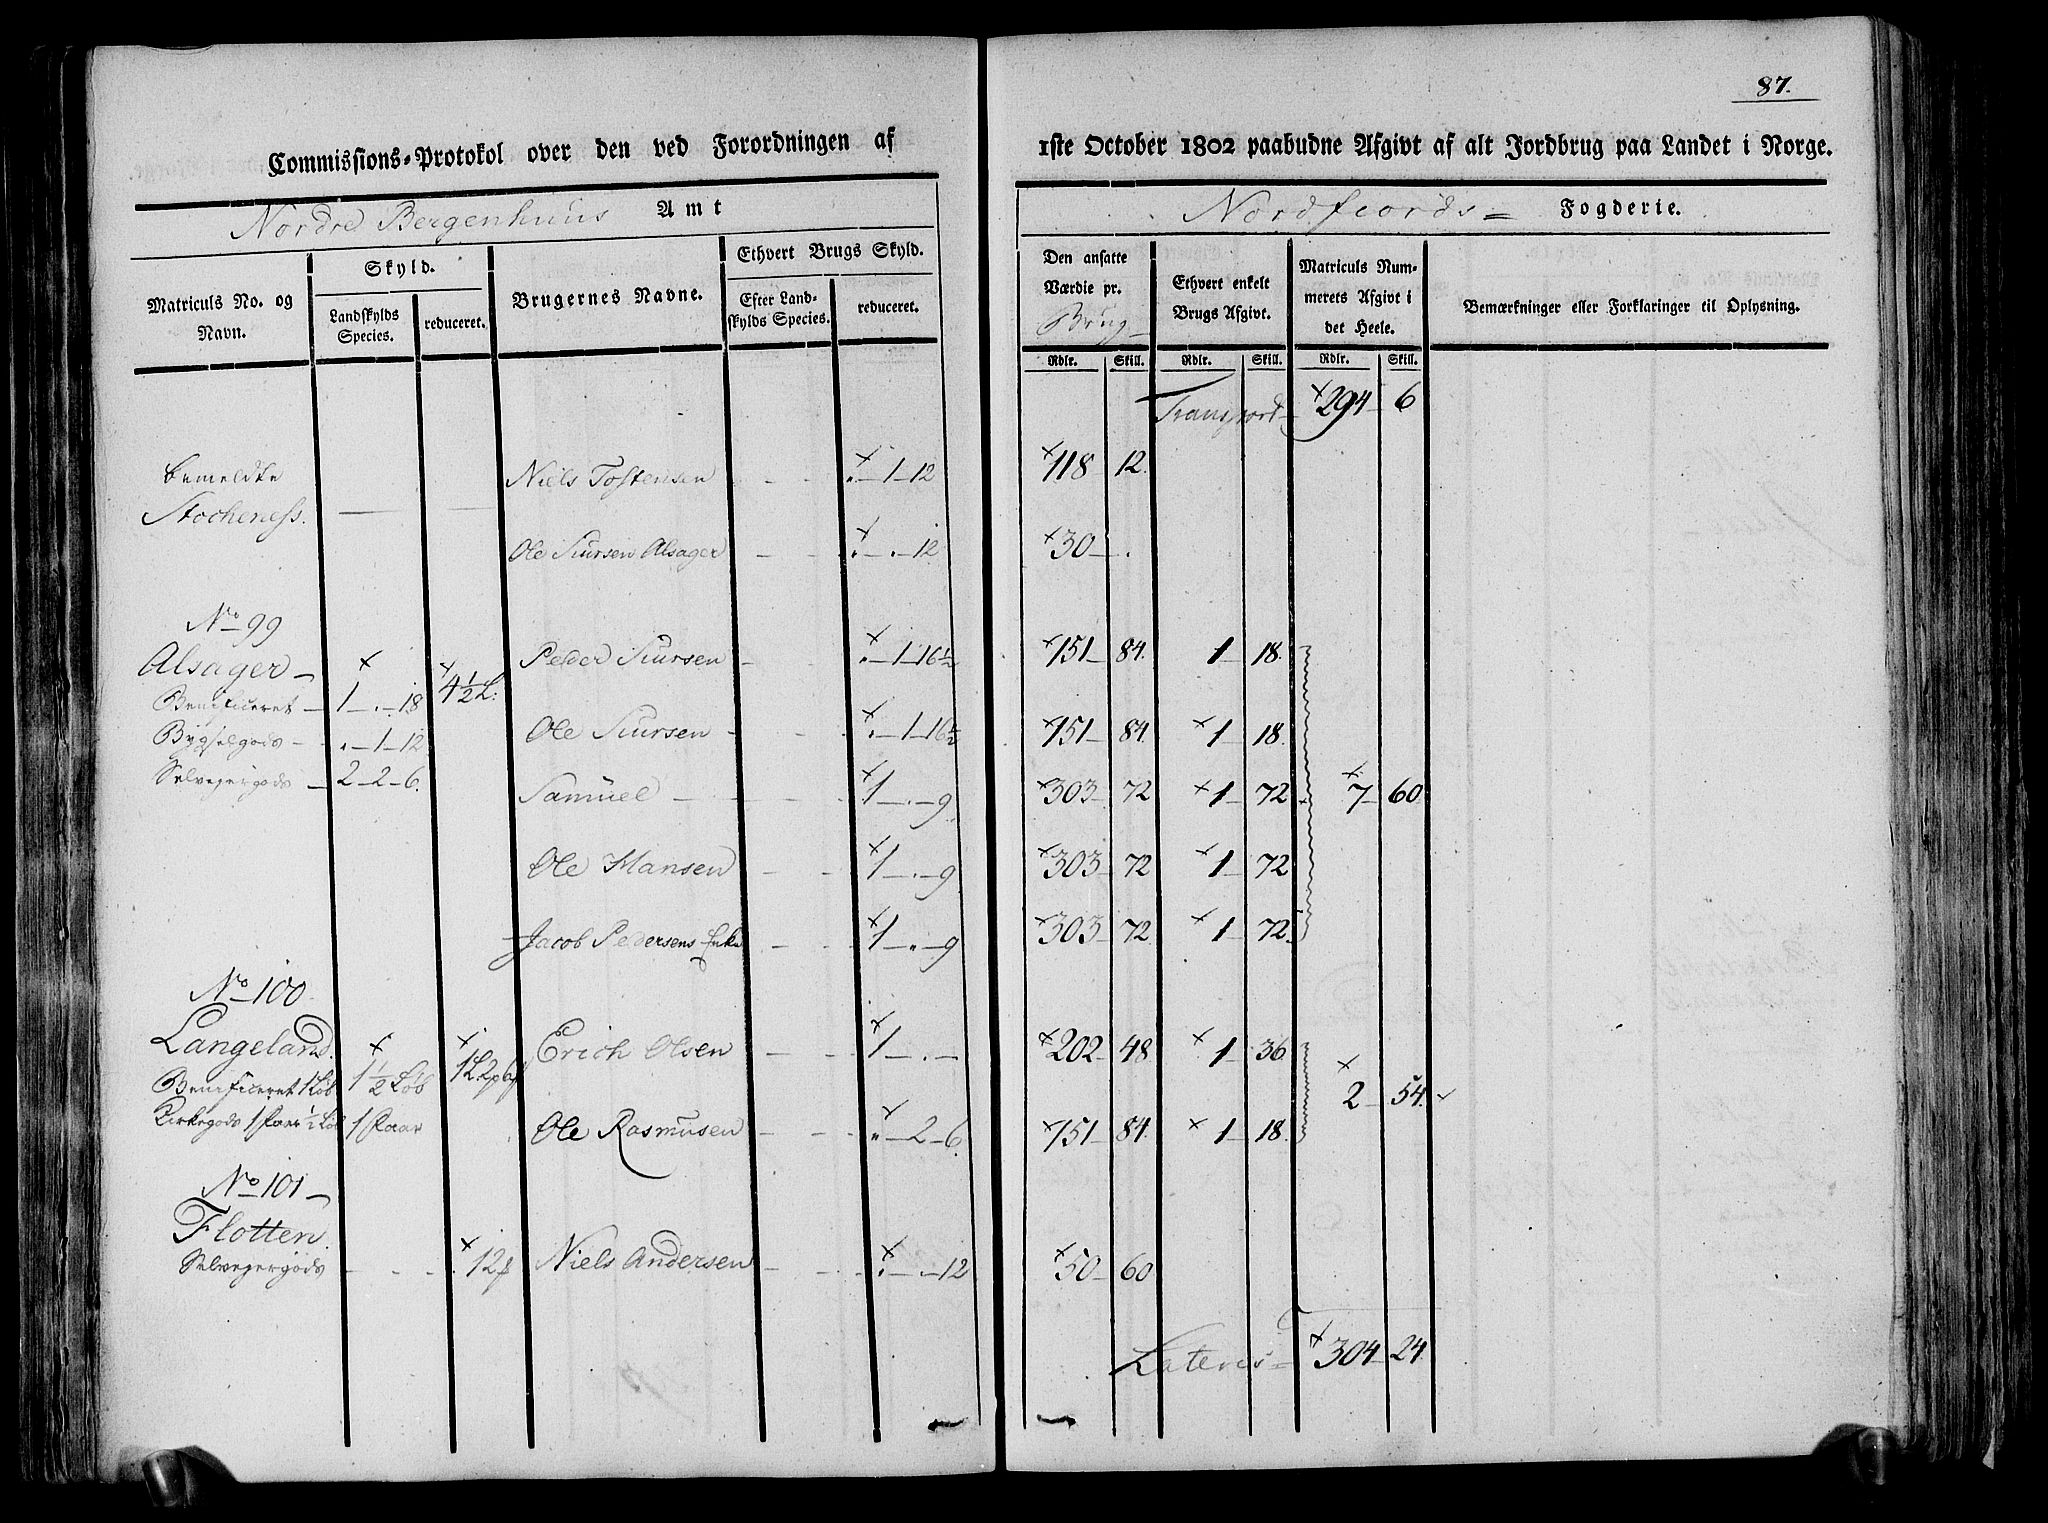 87.
Commissions-Protokol over den ved Forordningen af 1ste October 1802 paabudne Afgivt af alt Jordbrug paa Landet i Norge.
Nordre Bergenhuus Amt
Nordfiords Fogderie.
Matriculs No. og Navn.
Skyld.
Landskylds Species.
reduceret.
Brugernes Navne.
Ethvert Brugs Skyld.
Efter Landskylds Species.
reduceret.
Den ansatte Værdie pr. Brug
Ethvert enkelt Brugs Afgivt.
Matriculs Nummerets Afgivt i det Heele.
Bemærkninger eller Forklaringer til Oplysning.
Rdlr. Skill. Rdlr. Skill. Rdlr. Skill.
Transport 294 6
bemeldte Niels Tostensen 1 12 118 12
Stocheness.
Ole Siursen Alsager 12 30
No 99
Alsager Peder Siursen 1 16½ 151 84 1 18
Beneficeret 1 18 4½ L:
Bygselgods 1 12 Ole Siursen 1 16½ 151 84 1 18
Selveyergods 2 2 6 Samuel 1 9 303 72 1 72 7 60
Ole Hansen 1 9 303 72 1 72
Jacob Pedersens Enke 1 9 303 72 1 72
No 100
Langeland Erich Olsen 1 202 48 1 36
Beneficeret 1 Løb 1½ Løb 2 54
Kirkegods 1 Spaar ½ Løb 1 Spaar Ole Rasmusen 2 6 151 84 1 18
No 101
Flotten
Selveyergods 12 Niels Andersen 12 50 60
Lateris 304 24